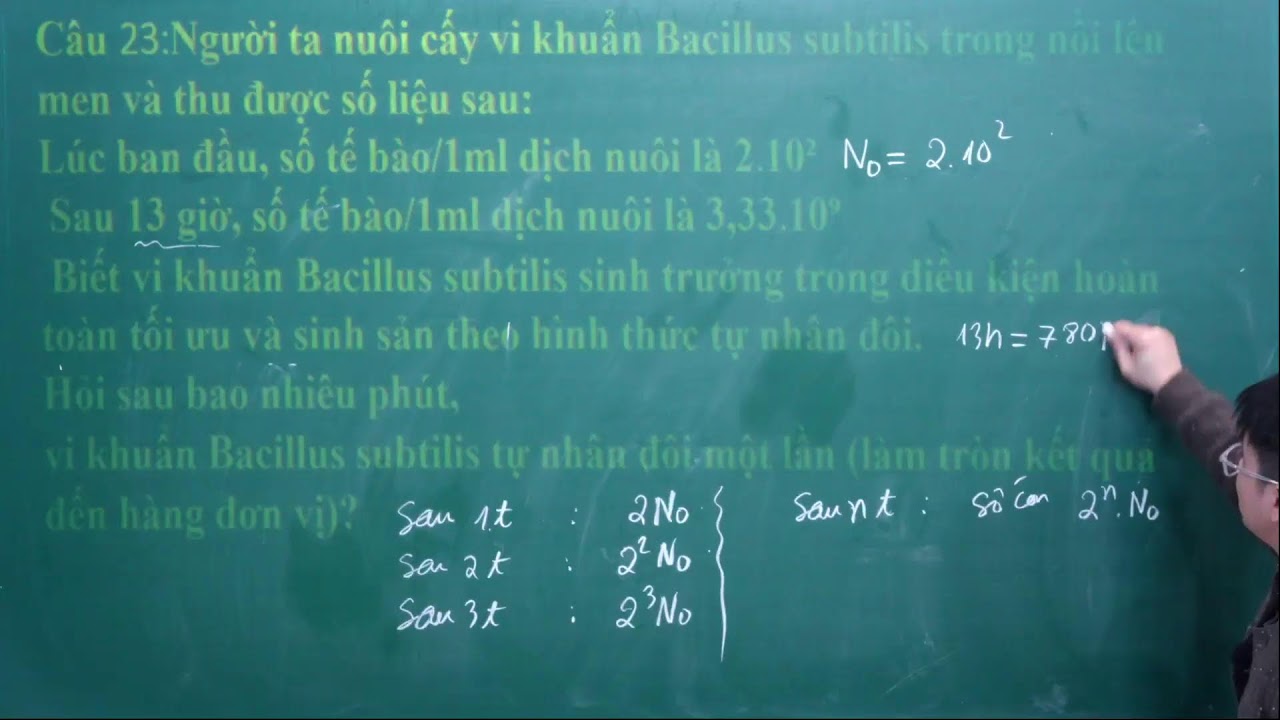 Câu 23:Người ta nuôi cấy vi khuẩn Bacillus subtilis trong nồi lên
men và thu được số liệu sau:
Lúc ban đầu, số tế bào/1ml dịch nuôi là 2.10² N₀ = 2.10²
Sau 13 giờ, số tế bào/1ml dịch nuôi là 3,33.10⁹
Biết vi khuẩn Bacillus subtilis sinh trưởng trong điều kiện hoàn
toàn tối ưu và sinh sản theo hình thức tự nhân đôi. 13h = 780
Hỏi sau bao nhiêu phút,
vi khuẩn Bacillus subtilis tự nhân đôi một lần (làm tròn kết quả
đến hàng đơn vị)?
Sau 1t : 2N₀
Sau 2t : 2²N₀
Sau 3t : 2³N₀
Sau nt : số con 2ⁿ.N₀